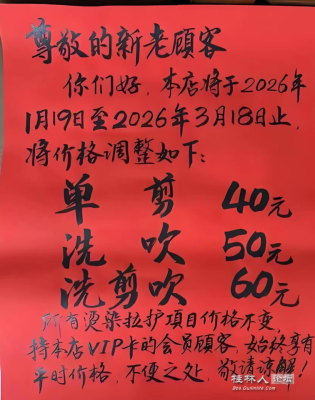 尊敬的新老顾客
你们好，本店将于2026年
1月19日至2026年3月18日止，
将价格调整如下：
单 剪 40元
洗 吹 50元
洗剪吹 60元
所有烫染拉护项目价格不变，
持本店VIP卡的会员顾客，始终享有
平时价格，不便之处，敬请谅解！
桂林人论坛